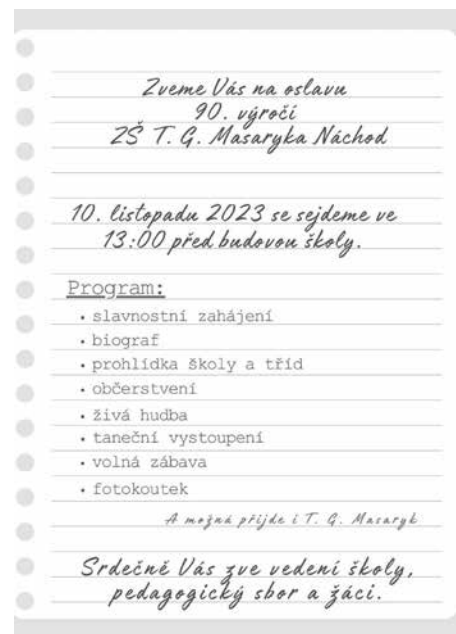 Zveme Vás na oslavu
90. výročí
ZŠ T. G. Masaryka Náchod
10. listopadu 2023 se sejdeme ve
13:00 před budovou školy.
Program:
• slavnostní zahájení
• biograf
• prohlídka školy a tříd
• občerstvení
• živá hudba
• taneční vystoupení
• volná zábava
• fotokoutek
A možná přijde i T. G. Masaryk
Srdečně Vás zve vedení školy,
pedagogický sbor a žáci.